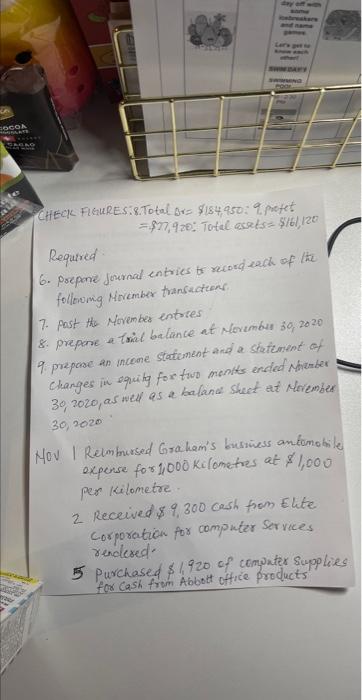 day off with
some
icebreakers
and name
games.
Let's get to
know each
other!
SWIM DAY!!
SWIMMING
POOL
COCOA
CACAO
CHECK FIGURES: 8. Total Dr = $184,950: 9. profit
= $27,920: Total assets = $161,120
Required
6. prepare journal entries to record each of the
following November transactions.
7. Post the November entries
8. prepare a trial balance at November 30, 2020
9. prepare an income statement and a statement of
changes in equity for two months ended November
30, 2020, as well as a balance sheet at November
30, 2020
NOV 1 Reimbursed Graham's business automobile
expense for 1,000 kilometres at $1,000
per kilometre.
2 Received $ 9,300 cash from Elite
Corporation for computer services
rendered.
5 Purchased $ 1,920 of computer supplies
for cash from Abbott office products